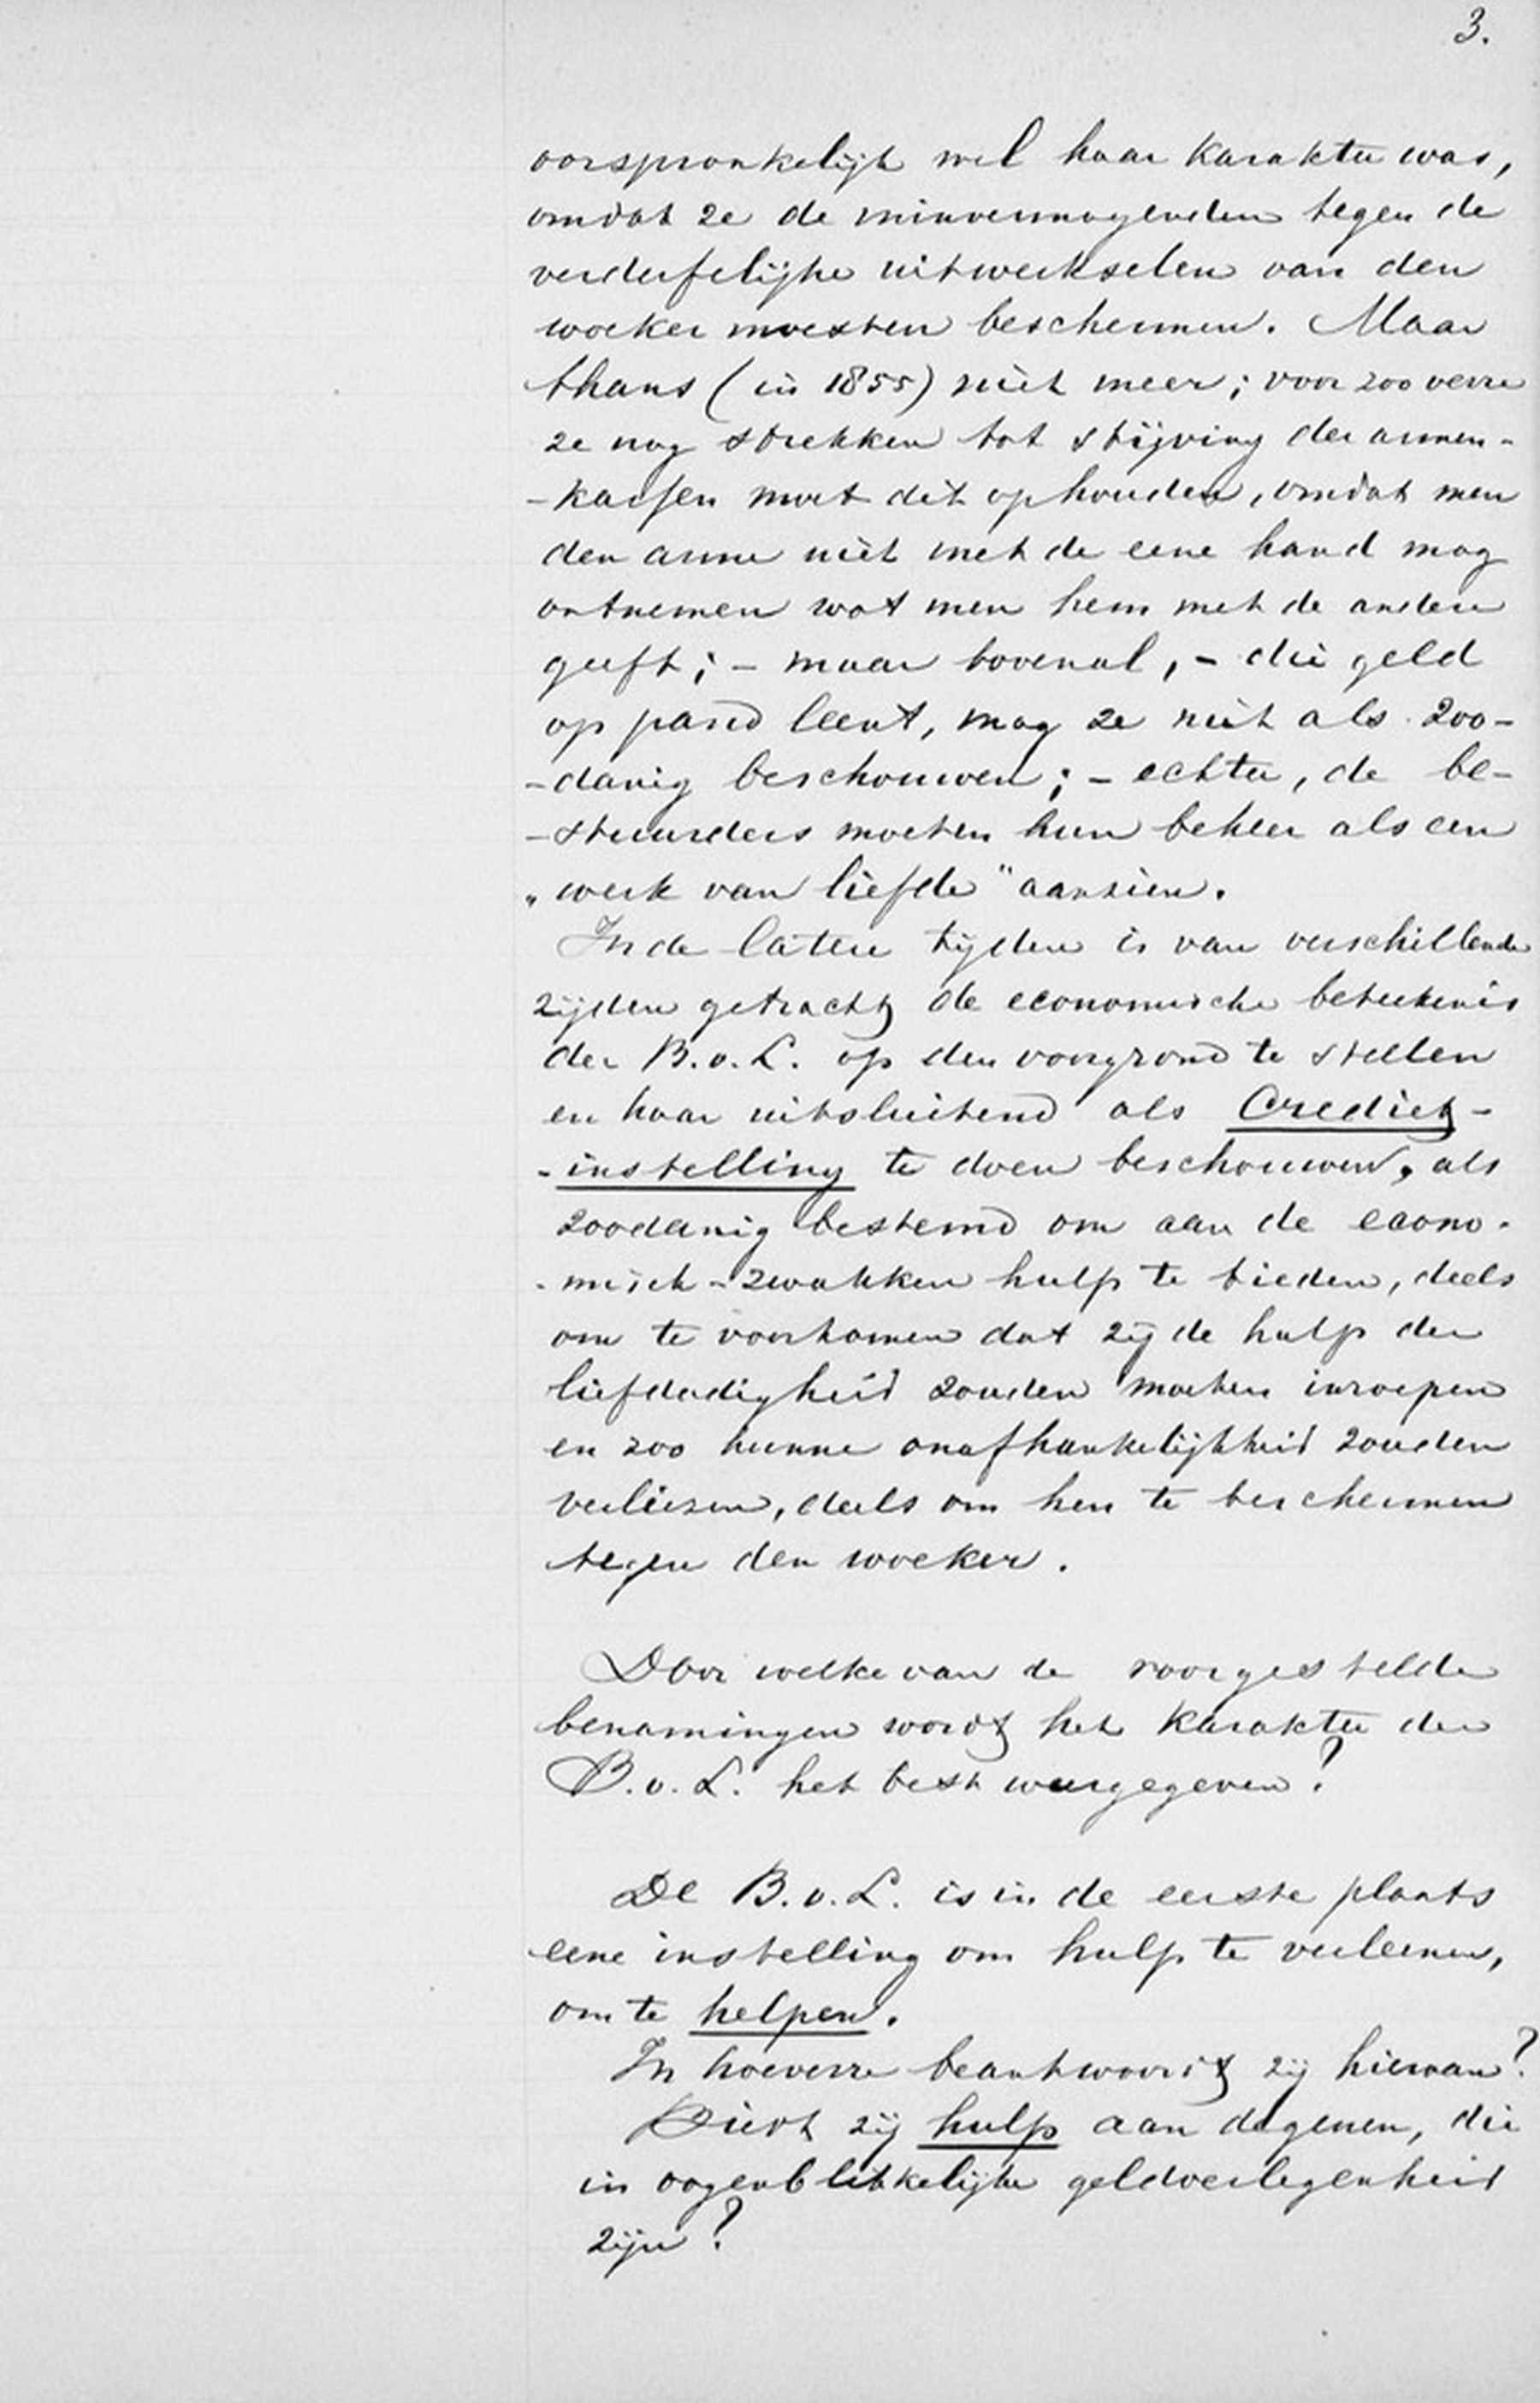 3.
oorspronkelijk wel haar karakter was,
omdat ze de minvermogenden tegen de
verderfelijke uitwerkselen van den
woeker moesten beschermen. Maar
thans (in 1855) niet meer; voor zoo verre
ze nog strekken tot stijving der armen-
-kassen moet dit ophouden, omdat men
den arme niet met de eene hand mag
ontnemen wat men hem met de andere
geeft; - maar bovenal, - die geld
op pand leent, mag ze niet als zoo-
-danig beschouwen; - echter, de be-
-stuurders moeten hun beheer als een
„werk van liefde" aanzien.
In de latere tijden is van verschillende
zijden getracht de economische beteekenis
der B.v.L. op den voorgrond te stellen
en haar uitsluitend als Crediet-
-instelling te doen beschouwen, als
zoodanig bestemd om aan de econo-
-misch-zwakken hulp te bieden, deels
om te voorkomen dat zij de hulp der
liefdadigheid zouden moeten inroepen
en zoo hunne onafhankelijkheid zouden
verliezen, deels om hen te beschermen
tegen den woeker.
Door welke van de voorgestelde
benamingen wordt het karakter der
B.v.L. het best weergegeven?
De B.v.L. is in de eerste plaats
eene instelling om hulp te verleenen,
om te helpen.
In hoeverre beantwoordt zij hieraan?
Biedt zij hulp aan degenen, die
in oogenblikkelijke geldverlegenheid
zijn?